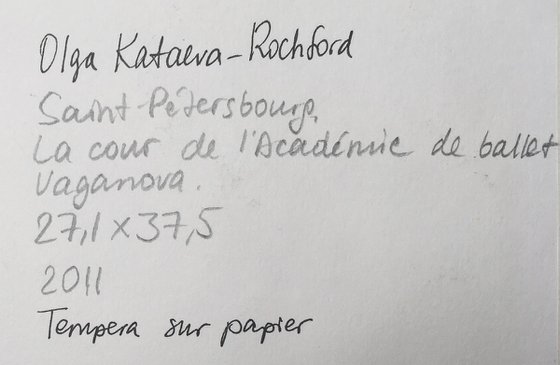 Olga Kataeva-Rochford
Saint-Pétersbourg,
La cour de l'Académie de ballet
Vaganova.
27,1 x 37,5
2011
Tempera sur papier